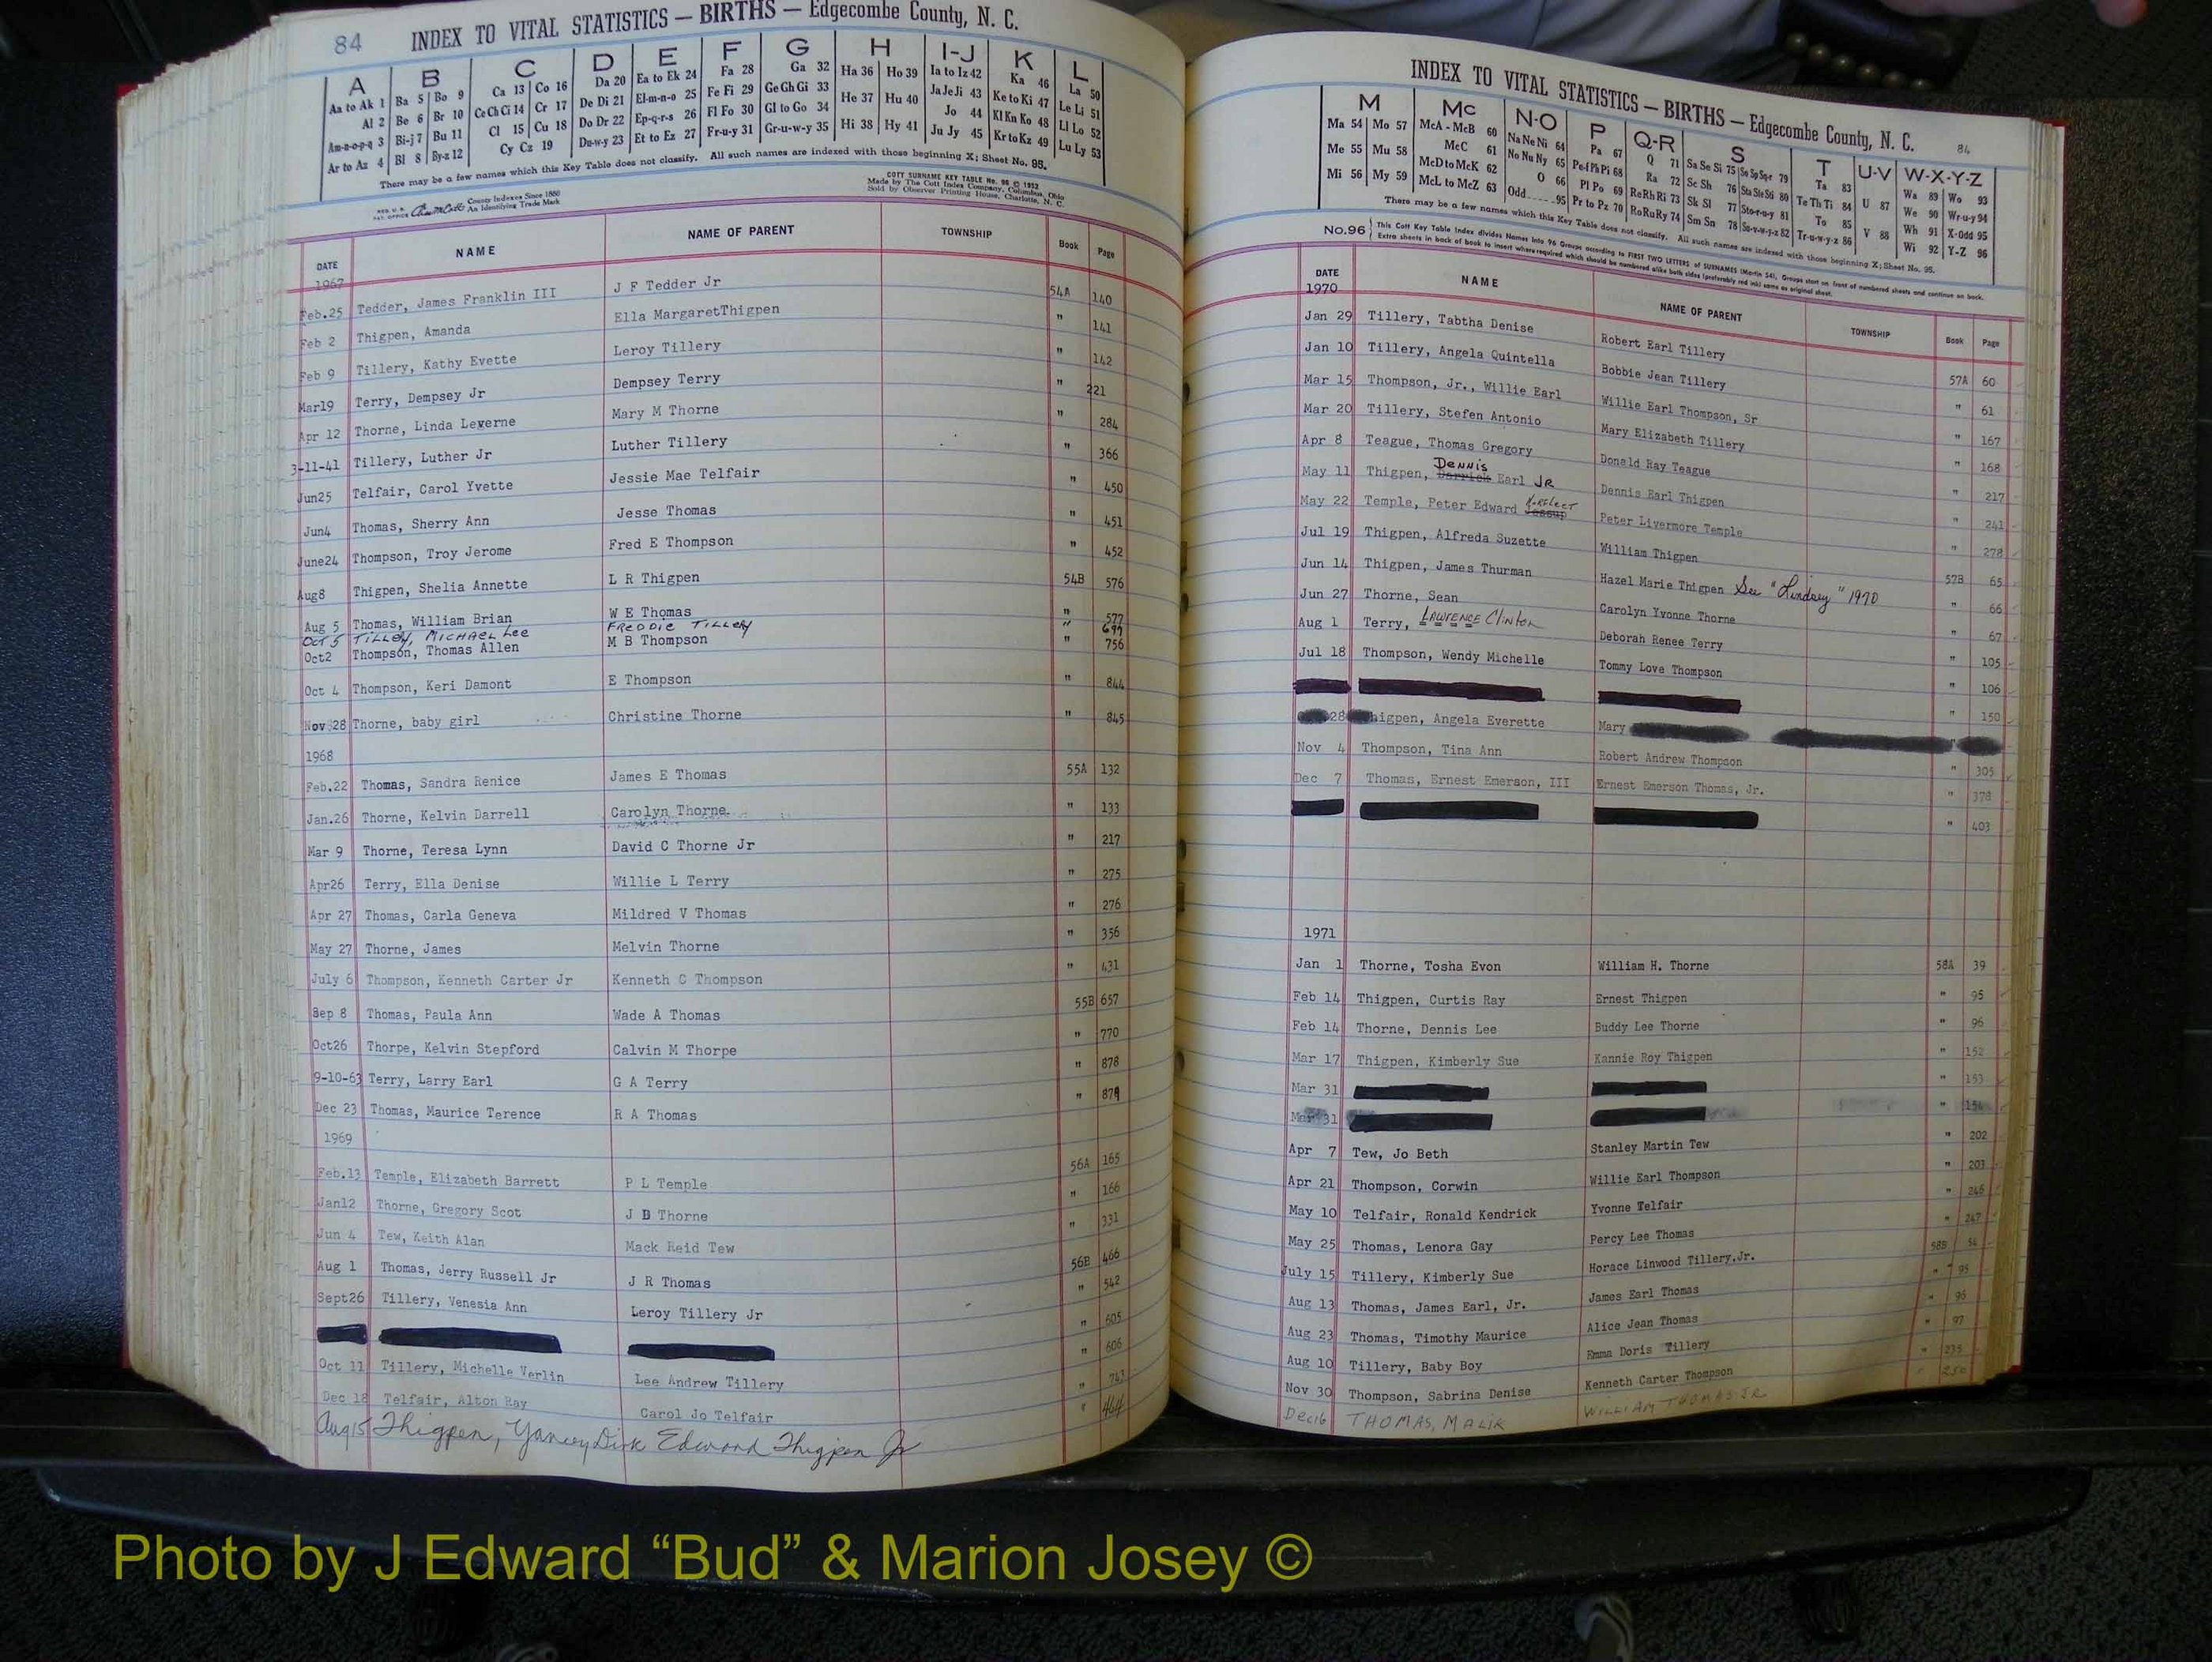 84 INDEX TO VITAL STATISTICS — BIRTHS — Edgecombe County, N. C.
A B C D E F G H I-J K L
Aa to Ak 1 Ba 5 Bo 9 Ca 13 Co 16 Da 20 Ea to Ek 24 Fa 28 Ga 32 Ha 36 Ho 39 Ia to Iz 42 Ka 46 La 50
Al 2 Be 6 Br 10 Ce Ch Ci 14 Cr 17 De Di 21 El-m-n-o 25 Fe Fi 29 Ge Gh Gi 33 He 37 Hu 40 Ja Je Ji 43 Ke to Ki 47 Le Li 51
Am-n-o-p-q 3 Bi-j 7 Bu 11 Cl 15 Cu 18 Do Dr 22 Ep-q-r-s 26 Fl Fo 30 Gl to Go 34 Hi 38 Hy 41 Jo 44 Kl Kn Ko 48 Ll Lo 52
Ar to Az 4 Bl 8 By-z 12 Cy Cz 19 Du-w-y 23 Et to Ez 27 Fr-u-y 31 Gr-u-w-y 35 Ju Jy 45 Kr to Kz 49 Lu Ly 53
There may be a few names which this Key Table does not classify. All such names are indexed with those beginning X; Sheet No. 95.
County Indexes Since 1880
An Identifying Trade Mark
COTT SURNAME KEY TABLE No. 96 © 1952
Made by The Cott Index Company, Columbus, Ohio
Sold by Observer Printing House, Charlotte, N. C.
DATE NAME NAME OF PARENT TOWNSHIP Book Page
1967
Feb.25 Tedder, James Franklin III J F Tedder Jr 54A 140
Feb 2 Thigpen, Amanda Ella MargaretThigpen " 141
Feb 9 Tillery, Kathy Evette Leroy Tillery " 142
Mar19 Terry, Dempsey Jr Dempsey Terry " 221
Apr 12 Thorne, Linda Leverne Mary M Thorne " 284
3-11-41 Tillery, Luther Jr Luther Tillery " 366
Jun25 Telfair, Carol Yvette Jessie Mae Telfair " 450
Jun4 Thomas, Sherry Ann Jesse Thomas " 451
June24 Thompson, Troy Jerome Fred E Thompson " 452
Aug8 Thigpen, Shelia Annette L R Thigpen 54B 576
Aug 5 Thomas, William Brian W E Thomas " 577
Oct 5 TILLERY, MICHAEL Lee FREDDIE TILLERY "
Oct2 Thompson, Thomas Allen M B Thompson " 756
Oct 4 Thompson, Keri Damont E Thompson " 844
Nov 28 Thorne, baby girl Christine Thorne " 845
1968
Feb.22 Thomas, Sandra Renice James E Thomas 55A 132
Jan.26 Thorne, Kelvin Darrell Carolyn Thorne " 133
Mar 9 Thorne, Teresa Lynn David C Thorne Jr " 217
Apr26 Terry, Ella Denise Willie L Terry " 275
Apr 27 Thomas, Carla Geneva Mildred V Thomas " 276
May 27 Thorne, James Melvin Thorne " 356
July 6 Thompson, Kenneth Carter Jr Kenneth C Thompson " 431
Sep 8 Thomas, Paula Ann Wade A Thomas 55B 657
Oct26 Thorpe, Kelvin Stepford Calvin M Thorpe " 770
9-10-63 Terry, Larry Earl G A Terry " 878
Dec 23 Thomas, Maurice Terence R A Thomas " 879
1969
Feb.13 Temple, Elizabeth Barrett P L Temple 56A 165
Jan12 Thorne, Gregory Scot J B Thorne " 166
Jun 4 Tew, Keith Alan Mack Reid Tew " 331
Aug 1 Thomas, Jerry Russell Jr J R Thomas 56B 466
Sept26 Tillery, Venesia Ann Leroy Tillery Jr " 542
" 605
Oct 11 Tillery, Michelle Verlin Lee Andrew Tillery " 606
Dec 18 Telfair, Alton Ray Carol Jo Telfair " 743
Aug 15 Thigpen, Yancey Dirk Edward Thigpen Jr " 464
INDEX TO VITAL STATISTICS — BIRTHS — Edgecombe County, N. C. 84
M Mc N-O P Q-R S T U-V W-X-Y-Z
Ma 54 Mo 57 McA - McB 60 Na Ne Ni 64 Pa 67 Q 71 Sa Se Si 75 So Sp Sq-r 79 Ta 83 U 87 Wa 89 Wo 93
Me 55 Mu 58 McC 61 No Nu Ny 65 Pe-f Ph Pi 68 Ra 72 Sc Sh 76 Sta Ste Sti 80 Te Th Ti 84 V 88 We 90 Wr-u-y 94
Mi 56 My 59 McD to McK 62 O 66 Pl Po 69 Re Rh Ri 73 Sk Sl 77 Sto-r-u-y 81 To 85 Wh 91 X-Odd 95
McL to McZ 63 Odd 95 Pr to Pz 70 Ro Ru Ry 74 Sm Sn 78 Su-v-w-y-z 82 Tr-u-w-y-z 86 Wi 92 Y-Z 96
There may be a few names which this Key Table does not classify. All such names are indexed with those beginning X; Sheet No. 95.
No.96 This Cott Key Table Index divides Names into 96 Groups according to FIRST TWO LETTERS of SURNAMES (Martin 54). Groups start on front of numbered sheets and continue on back.
Extra sheets in back of book to insert where required which should be numbered alike both sides (preferably red ink) same as original sheet.
DATE NAME NAME OF PARENT TOWNSHIP Book Page
1970
Jan 29 Tillery, Tabtha Denise Robert Earl Tillery 57A 60
Jan 10 Tillery, Angela Quintella Bobbie Jean Tillery " 61
Mar 15 Thompson, Jr., Willie Earl Willie Earl Thompson, Sr " 167
Mar 20 Tillery, Stefen Antonio Mary Elizabeth Tillery " 168
Apr 8 Teague, Thomas Gregory Donald Ray Teague " 217
May 11 Thigpen, Dennis Earl JR Dennis Earl Thigpen " 241
May 22 Temple, Peter Edward Peter Livermore Temple " 278
Jul 19 Thigpen, Alfreda Suzette William Thigpen 57B 65
Jun 14 Thigpen, James Thurman Hazel Marie Thigpen See "Lindsey" 1970 " 66
Jun 27 Thorne, Sean Carolyn Yvonne Thorne " 67
Aug 1 Terry, LAWRENCE Clinton Deborah Renee Terry " 105
Jul 18 Thompson, Wendy Michelle Tommy Love Thompson " 106
" 150
28 higpen, Angela Everette Mary
Nov 4 Thompson, Tina Ann Robert Andrew Thompson " 305
Dec 7 Thomas, Ernest Emerson, III Ernest Emerson Thomas, Jr. " 378
" 403
1971
Jan 1 Thorne, Tosha Evon William H. Thorne 58A 39
Feb 14 Thigpen, Curtis Ray Ernest Thigpen " 95
Feb 14 Thorne, Dennis Lee Buddy Lee Thorne " 96
Mar 17 Thigpen, Kimberly Sue Kannie Roy Thigpen " 152
Mar 31 " 153
Mar 31 " 154
Apr 7 Tew, Jo Beth Stanley Martin Tew " 202
Apr 21 Thompson, Corwin Willie Earl Thompson " 203
May 10 Telfair, Ronald Kendrick Yvonne Telfair " 246
May 25 Thomas, Lenora Gay Percy Lee Thomas " 247
July 15 Tillery, Kimberly Sue Horace Linwood Tillery,Jr. 58B 54
Aug 13 Thomas, James Earl, Jr. James Earl Thomas " 95
Aug 23 Thomas, Timothy Maurice Alice Jean Thomas " 96
Aug 10 Tillery, Baby Boy Emma Doris Tillery " 97
Nov 30 Thompson, Sabrina Denise Kenneth Carter Thompson " 235
Dec 16 THOMAS, MALIK WILLIAM THOMAS JR " 250
Photo by J Edward “Bud” & Marion Josey ©